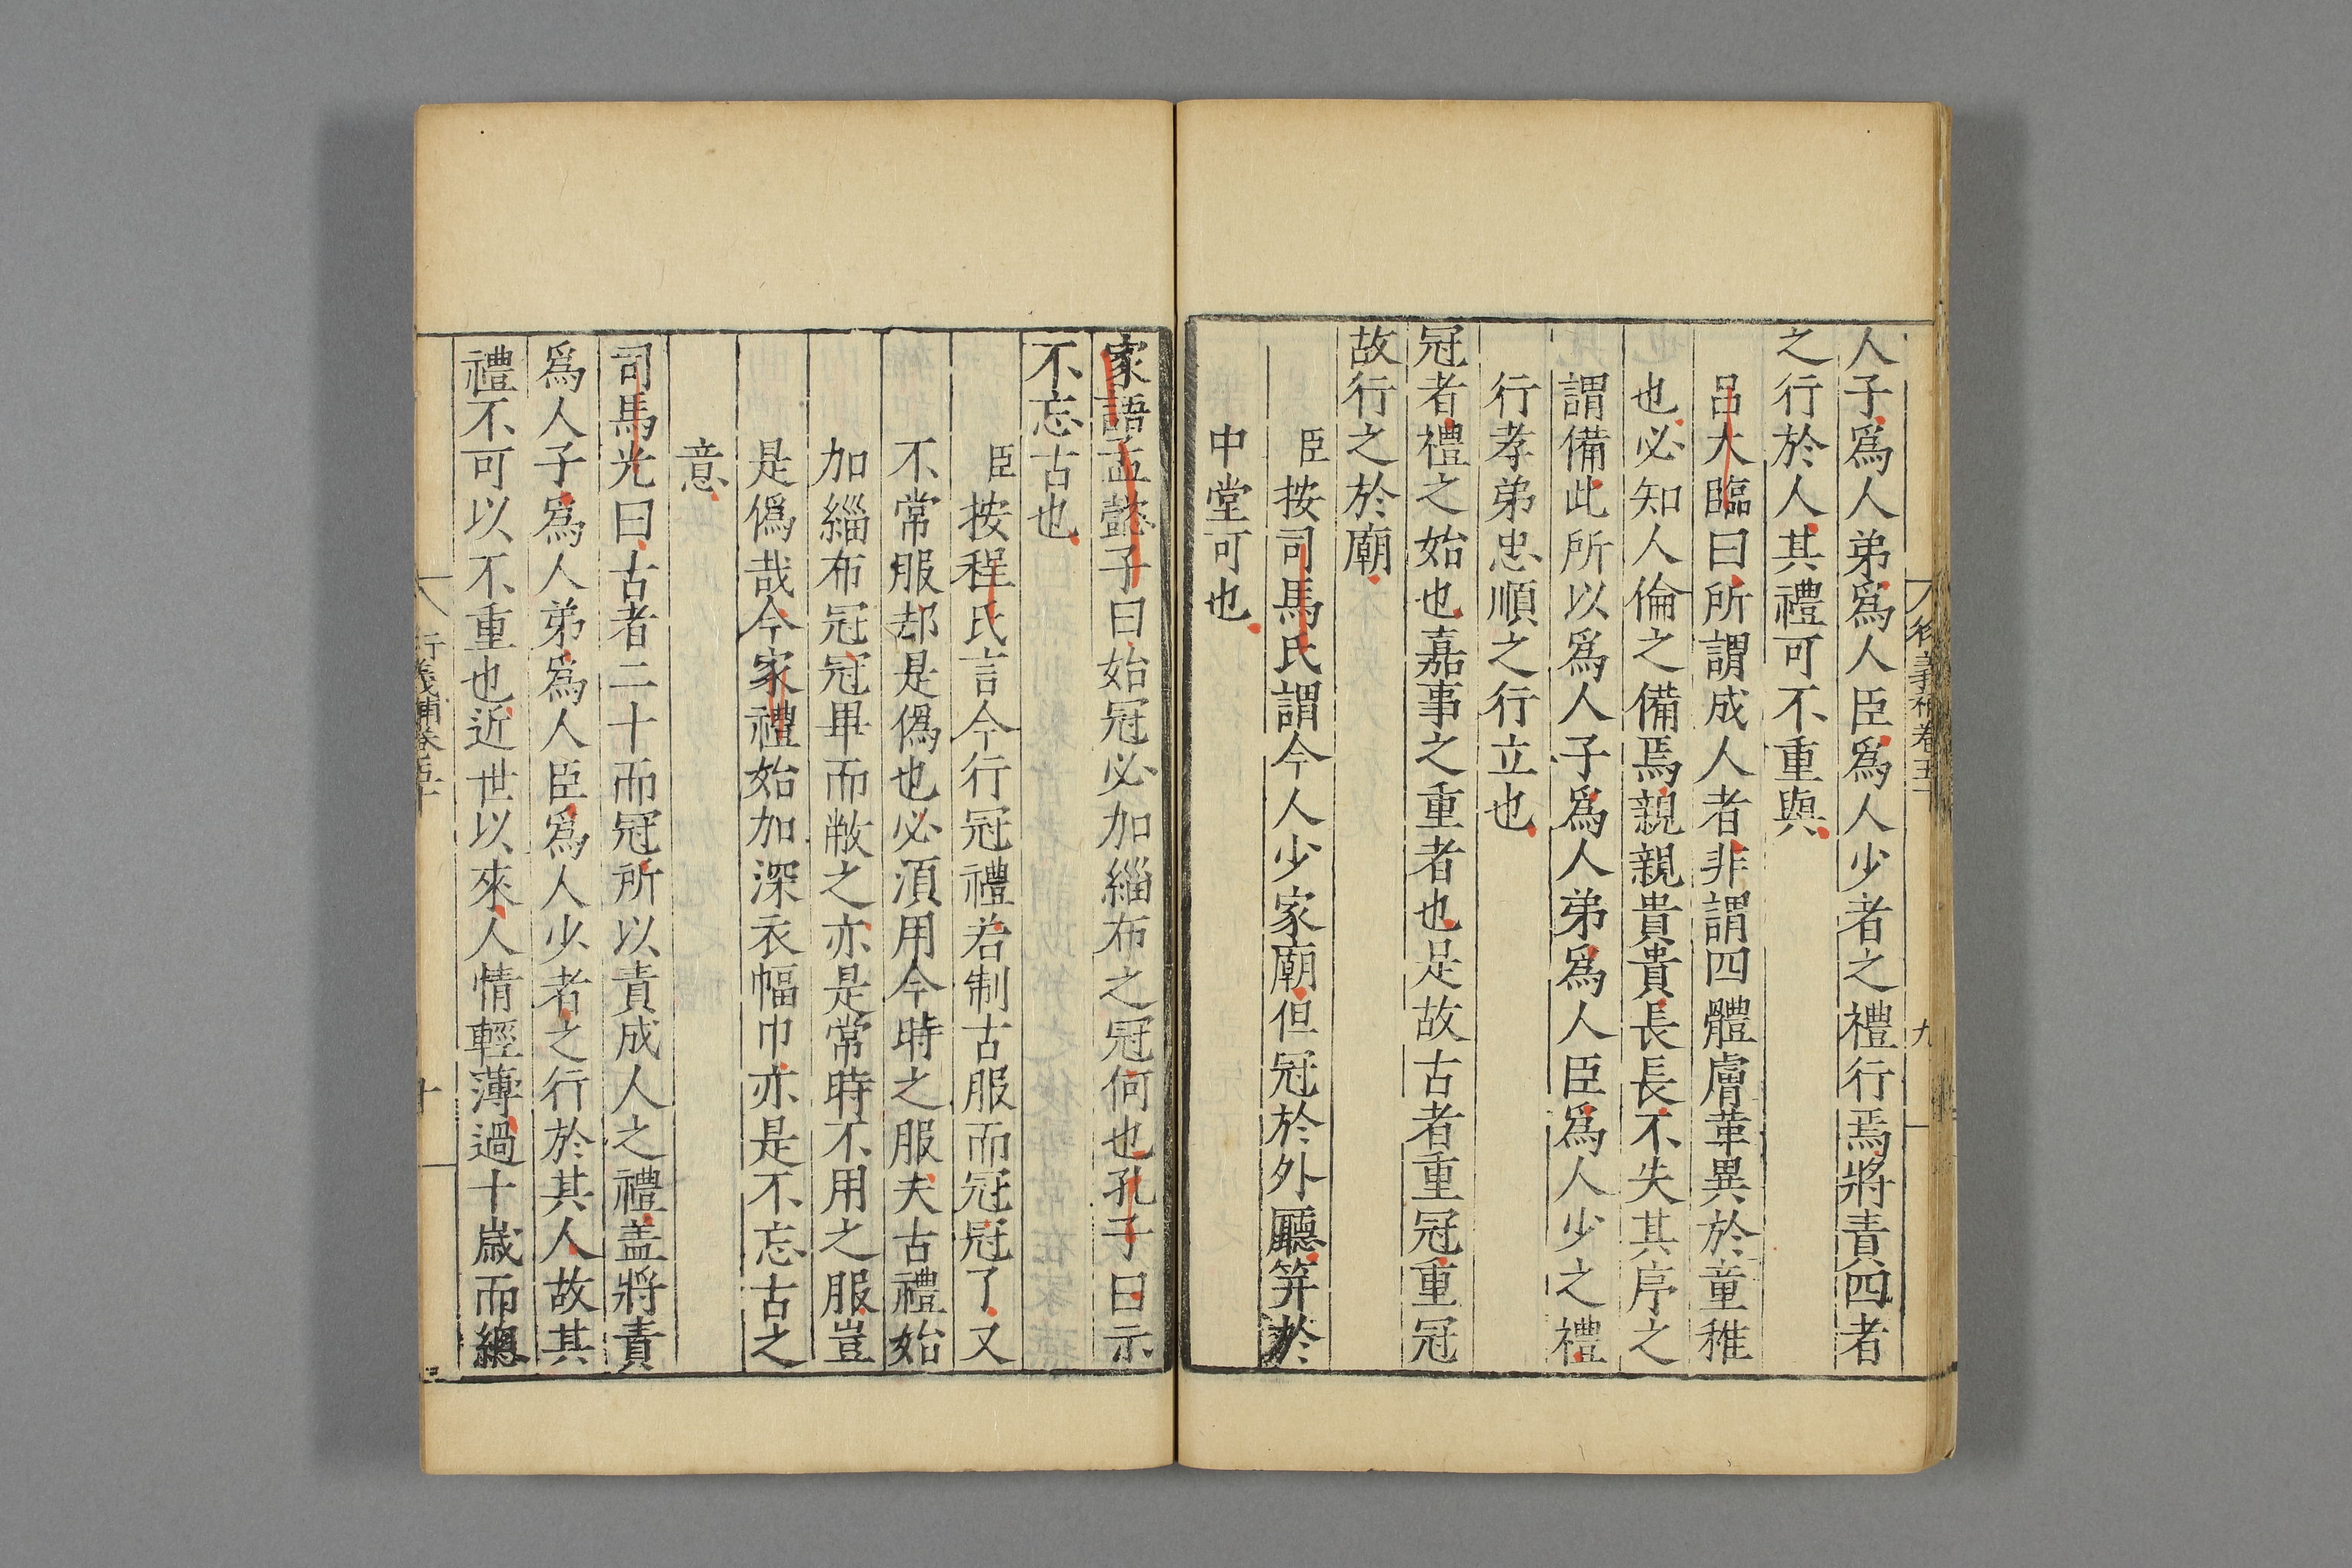 衍義補卷五十
九
人子爲人弟爲人臣爲人少者之禮行焉將責四者
之行於人其禮可不重與
呂大臨曰所謂成人者非謂四體膚革異於童稚
也必知人倫之備焉親親貴貴長長不失其序之
謂備此所以爲人子爲人弟爲人臣爲人少之禮
行孝弟忠順之行立也
冠者禮之始也嘉事之重者也是故古者重冠重冠
故行之於廟
臣按司馬氏謂今人少家廟但冠於外廳筓於
中堂可也
家語孟懿子曰始冠必加緇布之冠何也孔子曰示
不忘古也
臣按程氏言今行冠禮若制古服而冠冠了又
不常服却是僞也必湏用今時之服夫古禮始
加緇布冠冠畢而敝之亦是常時不用之服豈
是僞哉今家禮始加深衣幅巾亦是不忘古之
意
司馬光曰古者二十而冠所以責成人之禮盖將責
爲人子爲人弟爲人臣爲人少者之行於其人故其
禮不可以不重也近世以來人情輕薄過十歳而總
衍義補卷五十
十